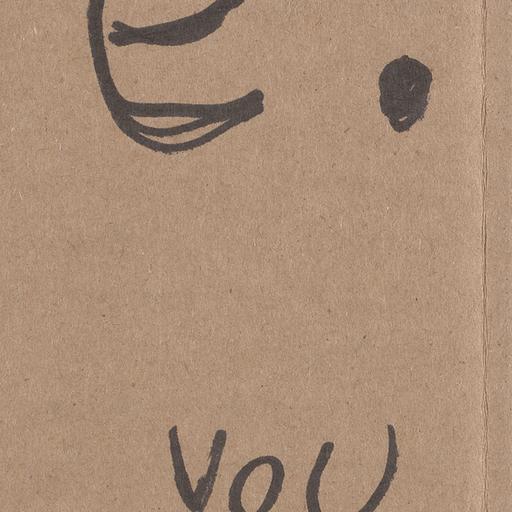 E.
YOU